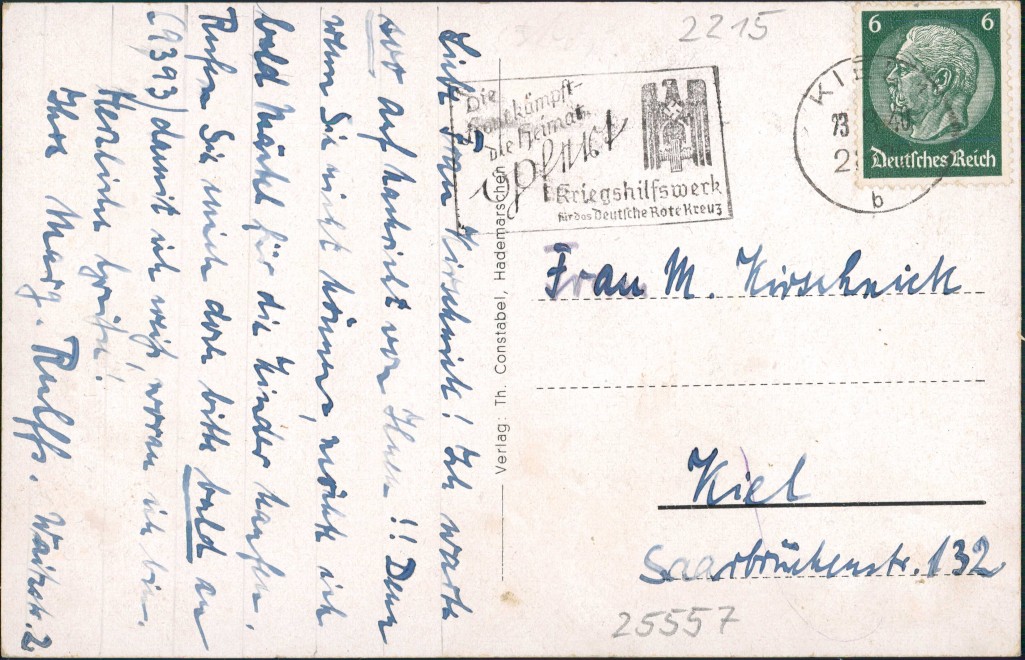 2215
6 6
Deutsches Reich
KIE
23
40
2
b
Die
Front kämpft-
die Heimat
opfert
Kriegshilfswerk
für das Deutsche Rote Kreuz
Liebe Frau Kirschnick! Ich warte
so auf Nachricht von Ihnen!! Denn
wenn Sie nicht können, möchte ich
bald Mäntel für die Kinder kaufen.
Rufen Sie mich doch bitte bald an
(9393) damit ich weiß, woran ich bin.
Herzliche Grüße!
Ihre Marg. Rulffs. Waitzstr. 2
Verlag: Th. Constabel, Hademarschen
Frau M. Kirschnick
Kiel
Saarbrückenstr. 132
25557